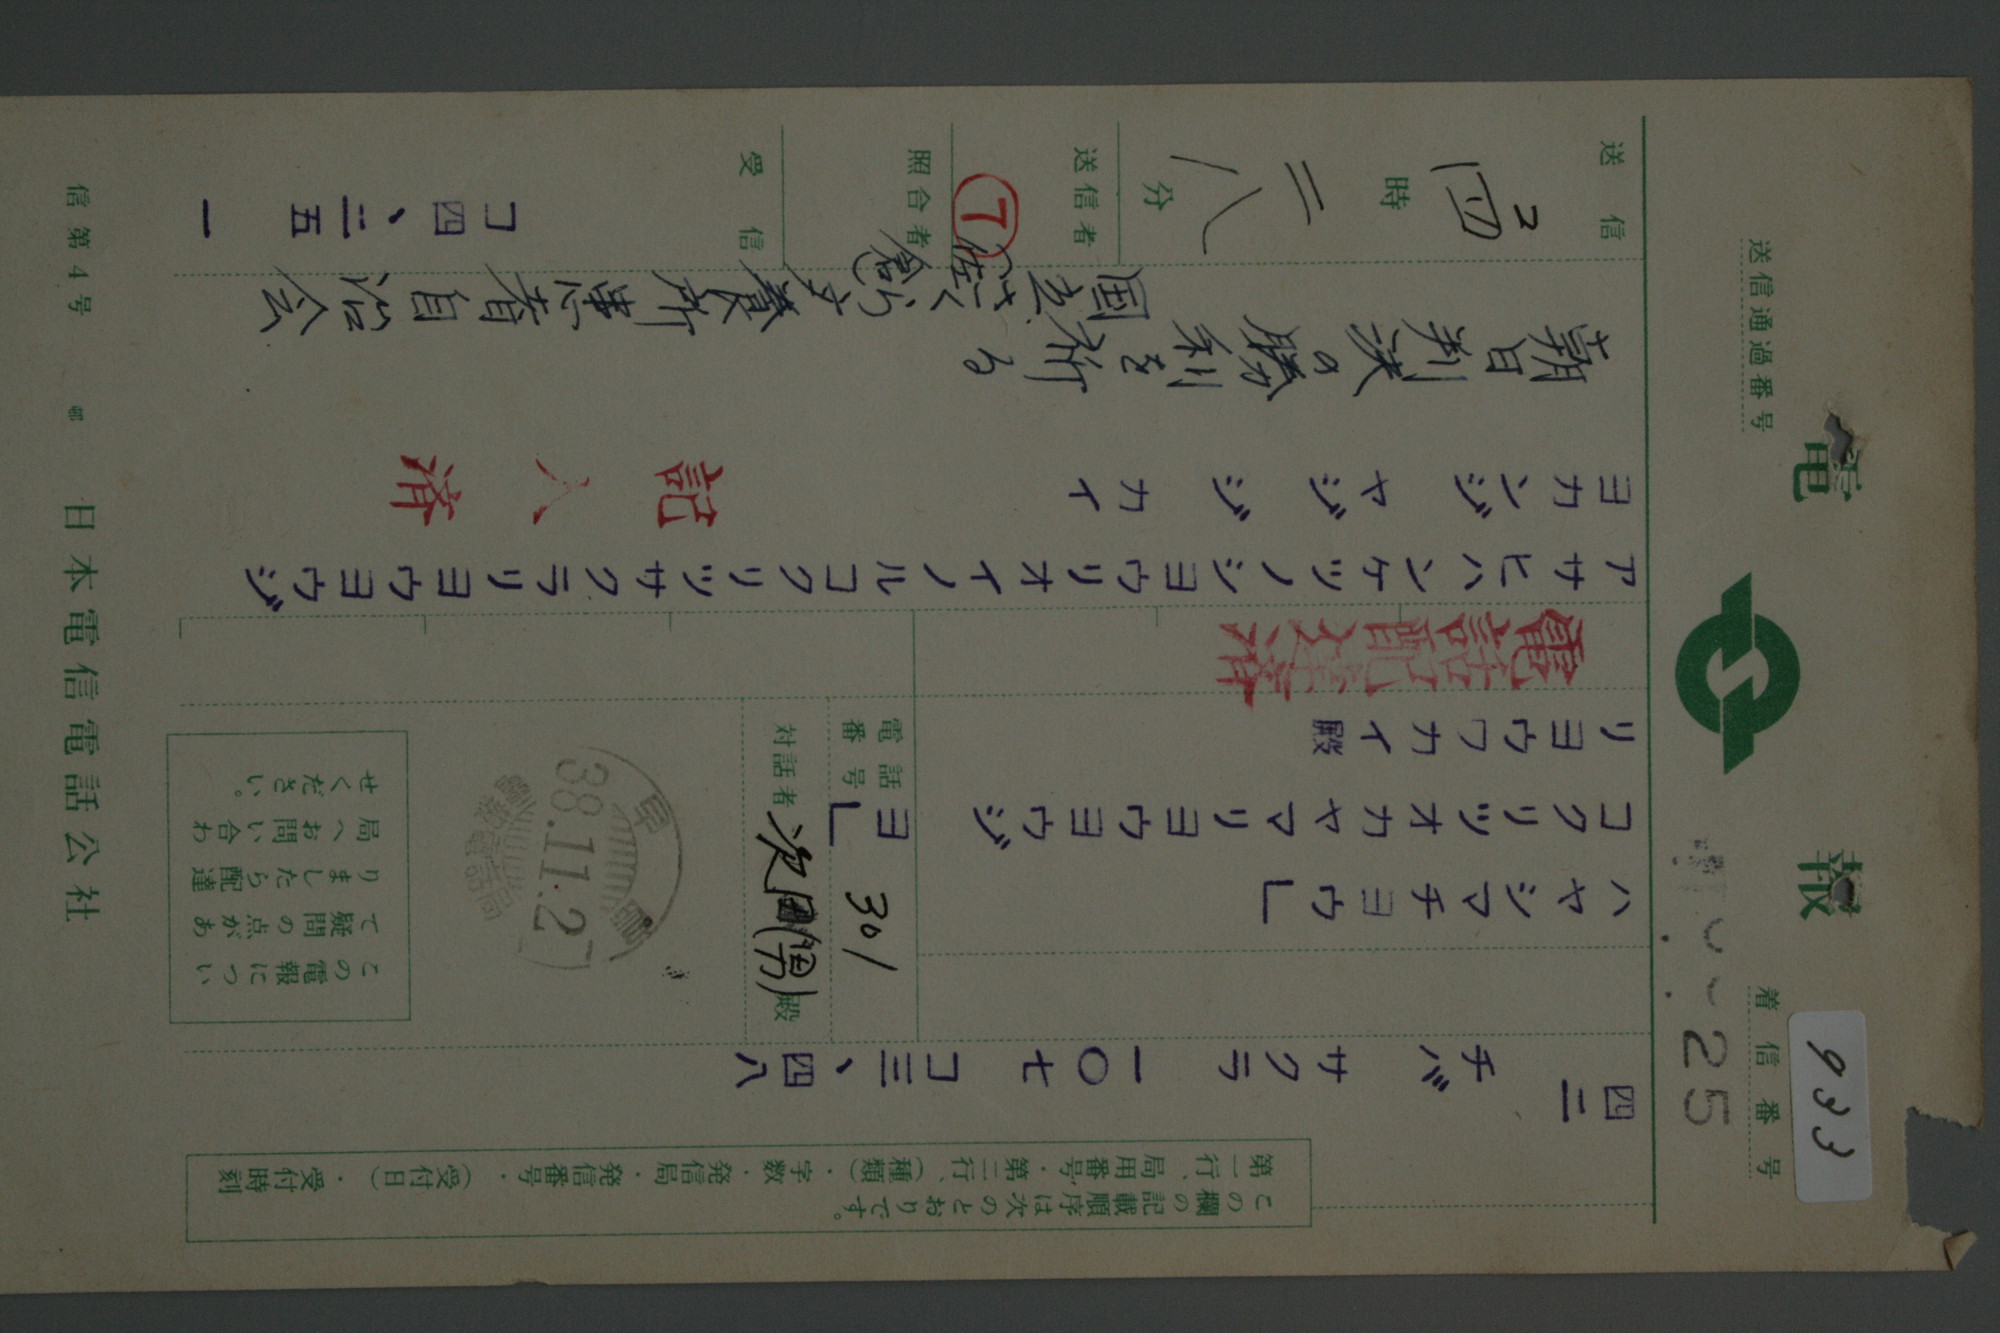 電報
着信番号
933
25
送信通過番号
この欄の記載順序は次のとおりです。
第一行、局用番号・第二行、(種類)・字数・発信局・発信番号・(受付日)・受付時刻
四二
チバ サクラ 一〇七 コ三、四八
ハヤシマチヨウ」
コクリツオカヤマリヨウヨウジヨ」
リヨウワカイ殿
電話番号 301
対話者 次田(男)殿
38.11.2
この電報につい
て疑問の点があ
りましたら配達
局へお問い合わ
せください。
電話配達済
アサヒハンケツノシヨウリオイノルコクリツサクラリヨウヨウジ
ヨカンジヤジジカイ
記入済
朝日判決の勝利を祈る
国立さくら療養所患者自治会
送信 コ四時二八分
送信者 T
照合者
受信 コ四、二五 一
信第4号
日本電信電話公社